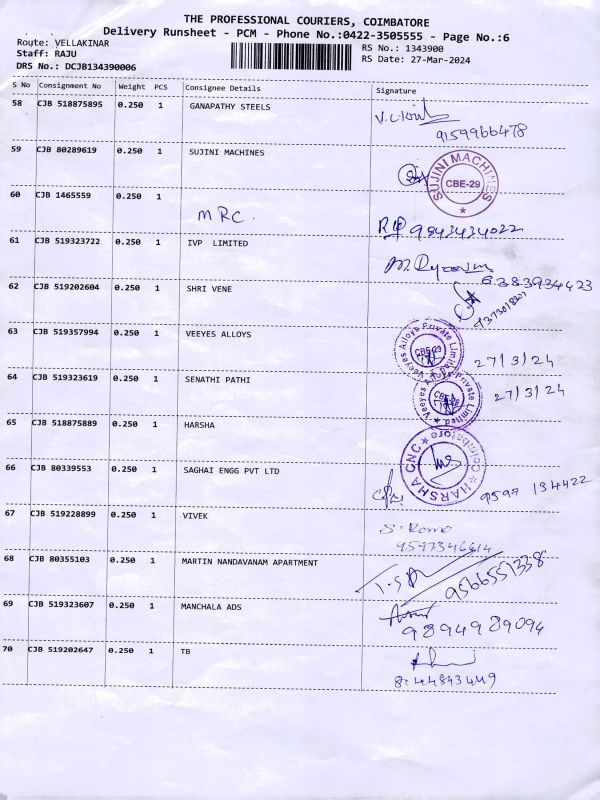 THE PROFESSIONAL COURIERS, COIMBATORE
Delivery Runsheet - PCM - Phone No.:0422-3505555 - Page No.:6
Route: VELLAKINAR
Staff: RAJU
DRS No.: DCJB134390006
RS No.: 1343900
RS Date: 27-Mar-2024
S No CJB No Weight PCS Consignee Details Signature
58 CJB 518875895 0.250 1 GANAPATHY STEELS
9159966478
59 CJB 80289619 0.250 1 SUJINI MACHINES
SUJINI MACHINES
CBE-29
60 CJB 1465559 0.250 1
MRC.
9843434022
61 CJB 519323722 0.250 1 IVP LIMITED
6383934423
62 CJB 519202604 0.250 1 SHRI VENE
63 CJB 519357994 0.250 1 VEEYES ALLOYS
Veeyes Alloys Private Limited
CBE-29
27/3/24
64 CJB 519323619 0.250 1 SENATHI PATHI
Veeyes Alloys Private Limited
27/3/24
65 CJB 518875889 0.250 1 HARSHA
HARSHA CNC
Coimbatore
66 CJB 80339553 0.250 1 SAGHAI ENGG PVT LTD
9597 134422
67 CJB 519228899 0.250 1 VIVEK
9597346614
68 CJB 80355103 0.250 1 MARTIN NANDAVANAM APARTMENT
9566551338
69 CJB 519323607 0.250 1 MANCHALA ADS
9894989094
70 CJB 519202647 0.250 1 TB
8144843449